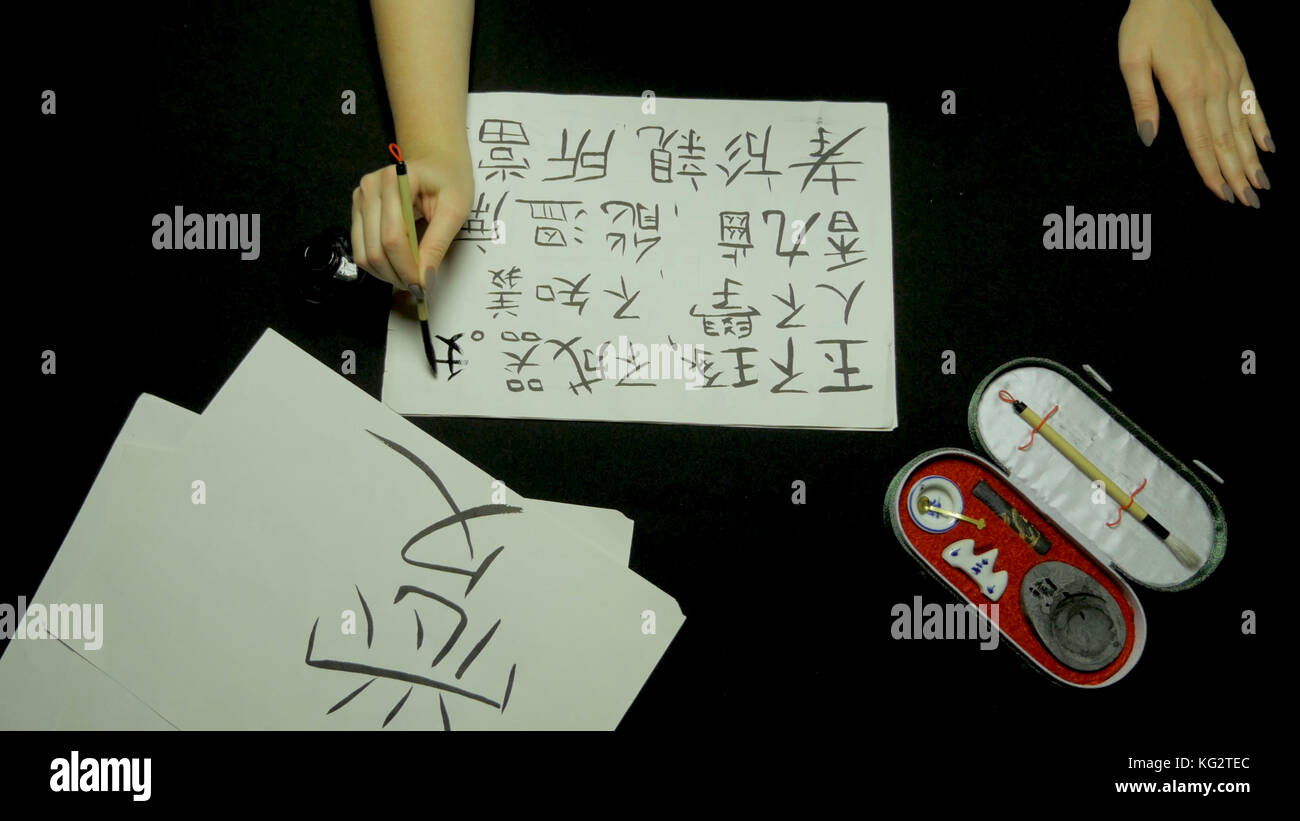 玉不琢,不成器。
人不學,不知義
香九齡,能溫席
孝於親所當
愛
a
a
a
a
a
a
a
a
a
a
a
alamy
alamy
alamy
alamy
alamy
Image ID: KG2TEC
www.alamy.com